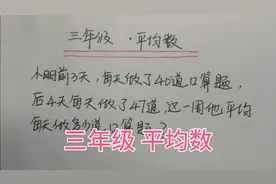 三年级 · 平均数
小明前3天,每天做了40道口算题,
后4天每天做了47道,这一周他平均
每天做多少道口算题?
三年级 平均数